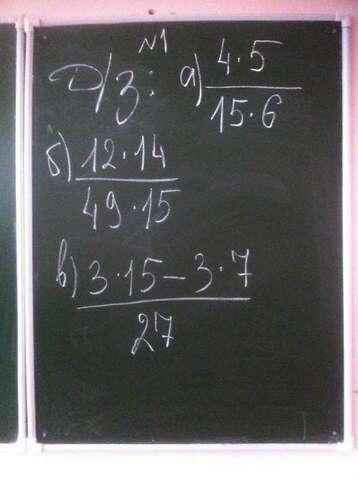 №1
Д/з: а) 4·5
15·6
б) 12·14
49·15
в) 3·15-3·7
27